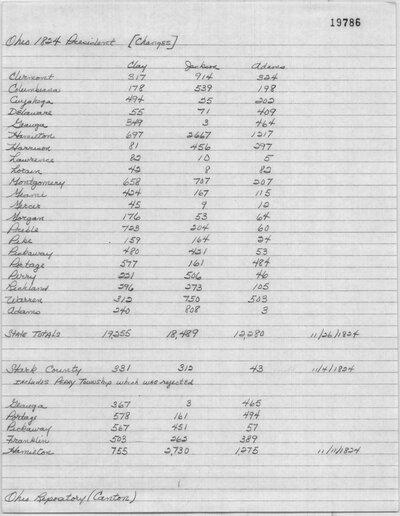 19786
Ohio 1824 President [Changes]
Clay Jackson Adams
Clermont 317 914 324
Columbiana 178 539 198
Cuyahoga 494 25 202
Delaware 55 71 409
Geauga 349 3 464
Hamilton 697 2667 1217
Harrison 81 456 297
Lawrence 82 10 5
Lorain 42 8 82
Montgomery 658 707 207
Miami 424 167 115
Mercer 45 9 12
Morgan 176 53 64
Preble 723 204 60
Pike 159 164 24
Pickaway 480 421 53
Portage 577 161 484
Perry 221 506 46
Richland 296 273 105
Warren 312 750 503
Adams 240 808 3
State Totals 19255 18,489 12,280 11/26/1824
Stark County 331 312 43 11/4/1824
Includes Perry Township which was rejected
Geauga 367 3 465
Portage 578 161 494
Pickaway 567 451 57
Franklin 503 262 389
Hamilton 755 2,730 1275 11/11/1824
Ohio Repository (Canton)